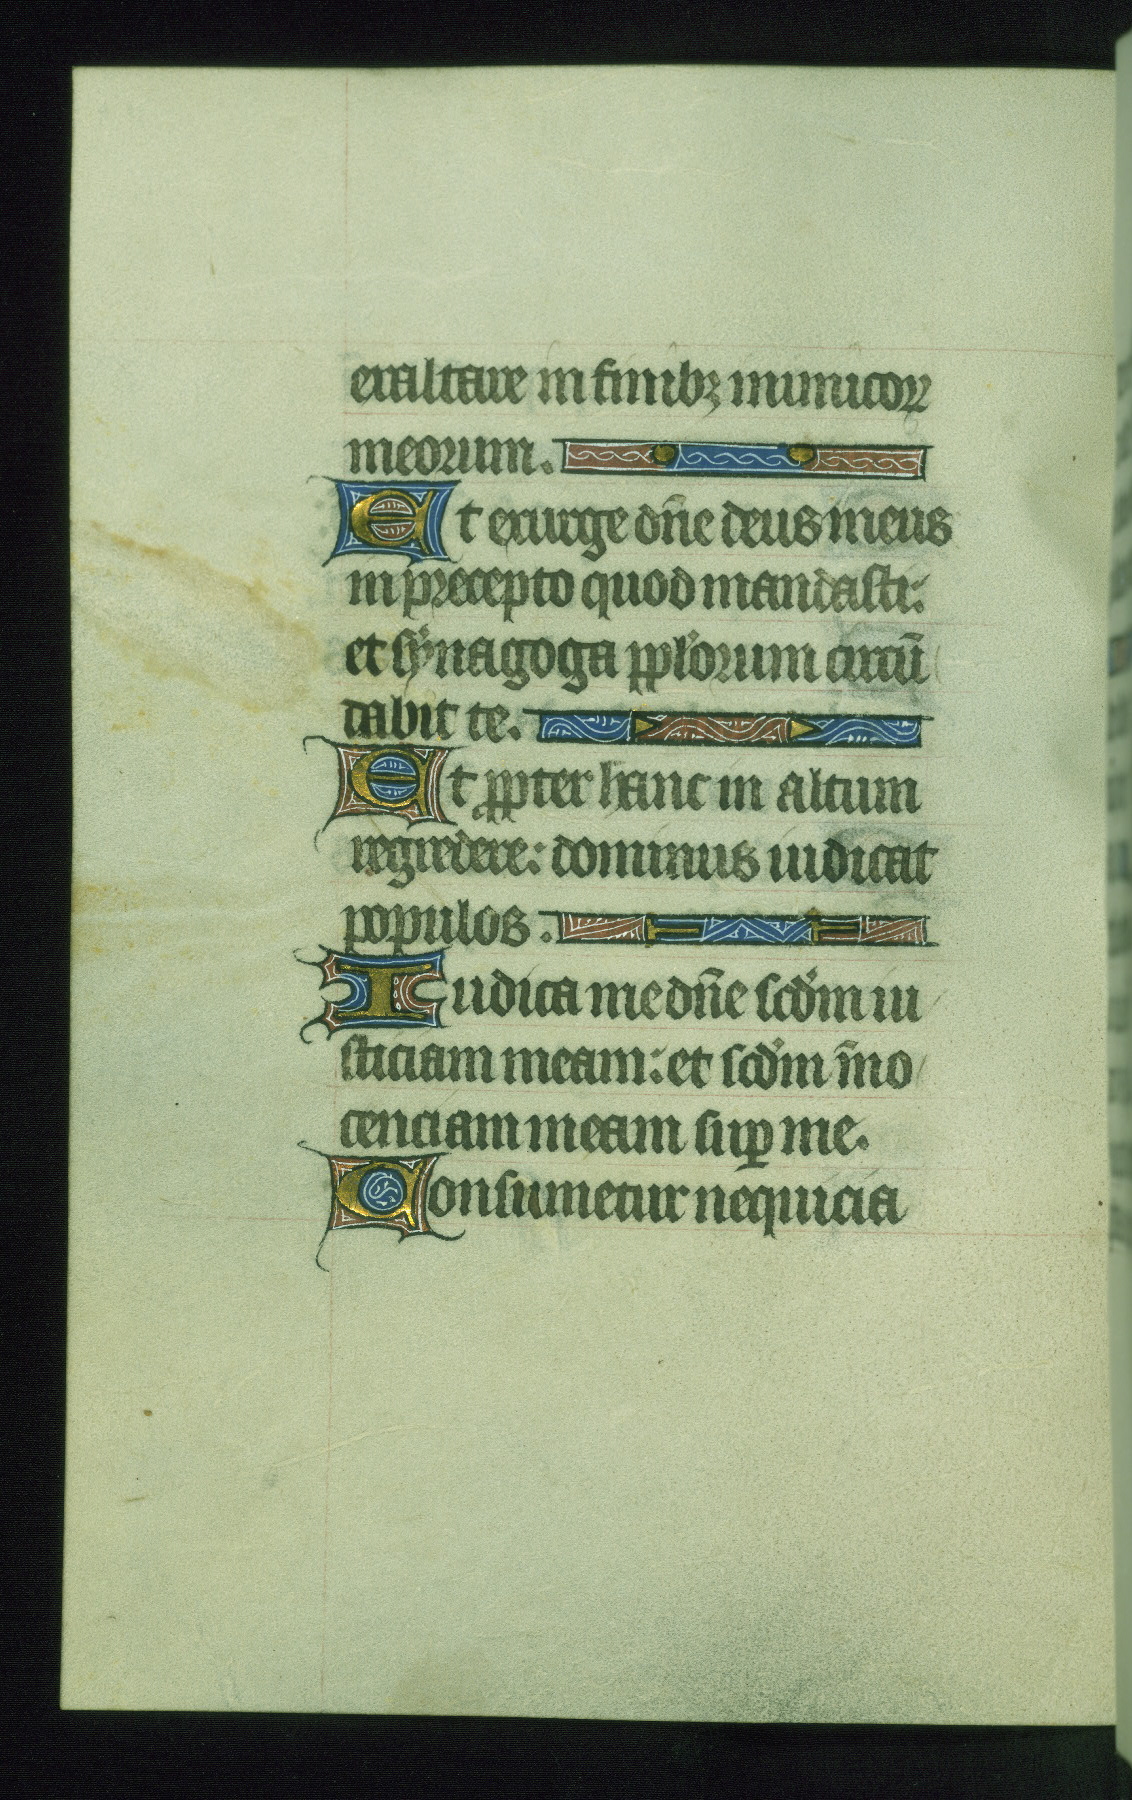 exaltare in finibꝫ inimicoꝝ
meorum.
Et exurge dn̄e deus meus
in precepto quod mandasti:
et synagoga pplorum circū
dabit te.
Et ꝓpter hanc in altum
regredere: dominus iudicat
populos.
Iudica me dn̄e scdm iu
sticiam meam: et scdm īno
cenciam meam suꝑ me.
Consumetur nequicia